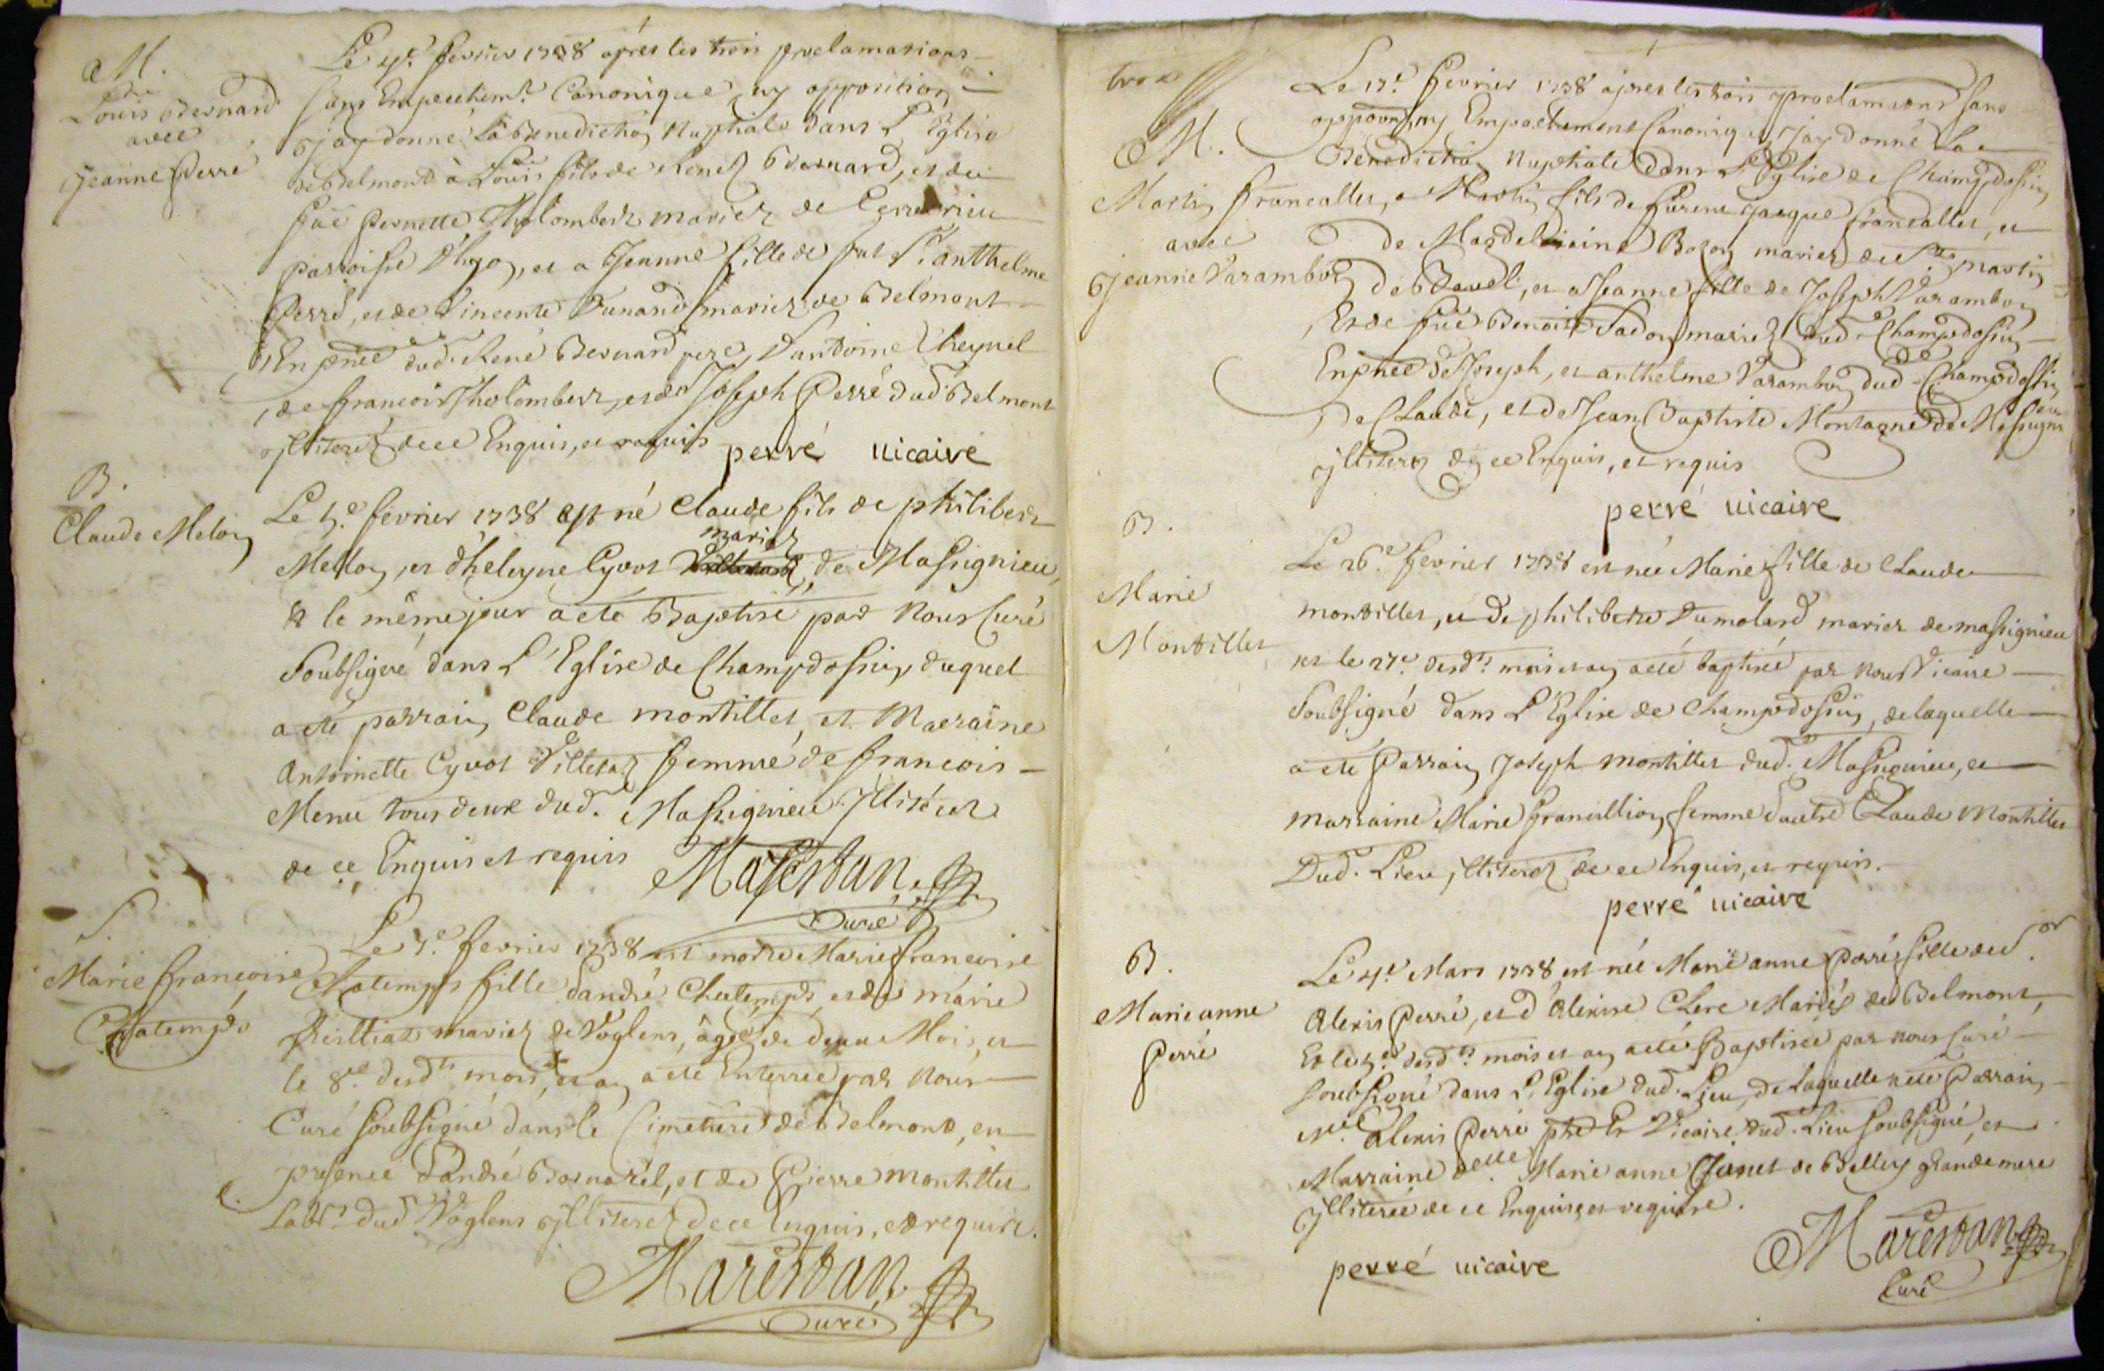 M.
Louis Bernard
avec
Jeanne Perré
Le 4e fevrier 1738 apres les trois proclamations
sans Empechemt Canonique ny opposition
j'ay donné la Benediction Nuptiale dans L'Eglise
de Belmont à Louis fils de René Bernard, et de
fue Pernette Tholombert mariez de
parroisse et a Jeanne fille de fut Sr anthelme
Perré, et de Vincente Dunand mariez de Belmont
En pnce dud. René Bernard pere, D'antoine Cheynel
de francois Tholombert, et de Joseph Perré dud. Belmont
jlliterez de ce Enquis, et requis perré uicaire
B.
Claude Melon
Le 5e fevrier 1738 est né Claude fils de philibert
Mellon, et d'heleyne Cyvot mariez de Massignieu,
& le même jour a ete Baptisé par Nous Curé
Soubsigné dans L'Eglise de Champdossin, duquel
a eté parrain Claude montillet, et Marraine
Antoinette Cyvot femme de francois
Menu tous deux dud. Massignieu Jlliterez
de ce Enquis et requis Marestan
Curé
S
Marie francoise
Chatemps
Le 7e fevrier 1738 est morte Marie francoise
Chatemps fille d'andré Chatemps, et de marie
mariez de Voglens, âgée de deux Mois, et
le 8e desdts mois, et an a eté Enterrée par Nous
Curé soubsigné dans le Cimetiere de Belmont, en
presence d'andré et de Pierre Montillet
Labrs dud. Voglens jlliterez de ce Enquis, et requis.
Marestan
Curé
trois
M.
Martin francallet,
avec
Jeanne Varambon
Le 17e fevrier 1738 apres les trois sans
ny Empechement Canonique, j'ay donné La
Benediction Nuptiale dans L'Eglise de Champdossin
a Martin fils de Jacque francallet, et
de Magdeleine Bozon mariez de St martin
de Bavel, et a Jeanne fille de Joseph Varambon
Et de fuë Benoite mariez dud. Champdossin
En pnce de Joseph, et anthelme Varambon dud. Champdossin
de Claude, et de Jean Baptiste Montagne de Massignieu
jlliterez de ce Enquis, et requis
perré uicaire
B.
Marie
Montillet
Le 26e fevrier 1738 est née Marie fille de Claude
montillet, et de philiberte Dumolard mariez de massignieu
et le 27e desdts mois et an a eté baptisée par Nous Vicaire
Soubsigné dans L'Eglise de Champdossin, de laquelle
a eté Parrain Joseph montillet dud. Massignieu, et
marraine Marie francillion femme d'autre Claude Montillet
Dud. Lieu, jlliterez de ce Enquis, et requis.
perré uicaire
B.
Marie anne
Perré
Le 4e Mars 1738 est née Marie anne Perré fille de Sr
Alexis Perré, et d'Alexise Clerc Mariés de Belmont,
Et le desdts mois et an a eté Baptisée par nous Curé
soubsigné dans L'Eglise dud. Lieu, de laquelle a eté Parrain
Alexis Perré ptre Et Vicaire dud. Lieu soubsigné, et
Marraine delle Marie anne de Belley grandemere
jlliterée de ce Enquise, et requise.
perré uicaire
Marestan
Curé